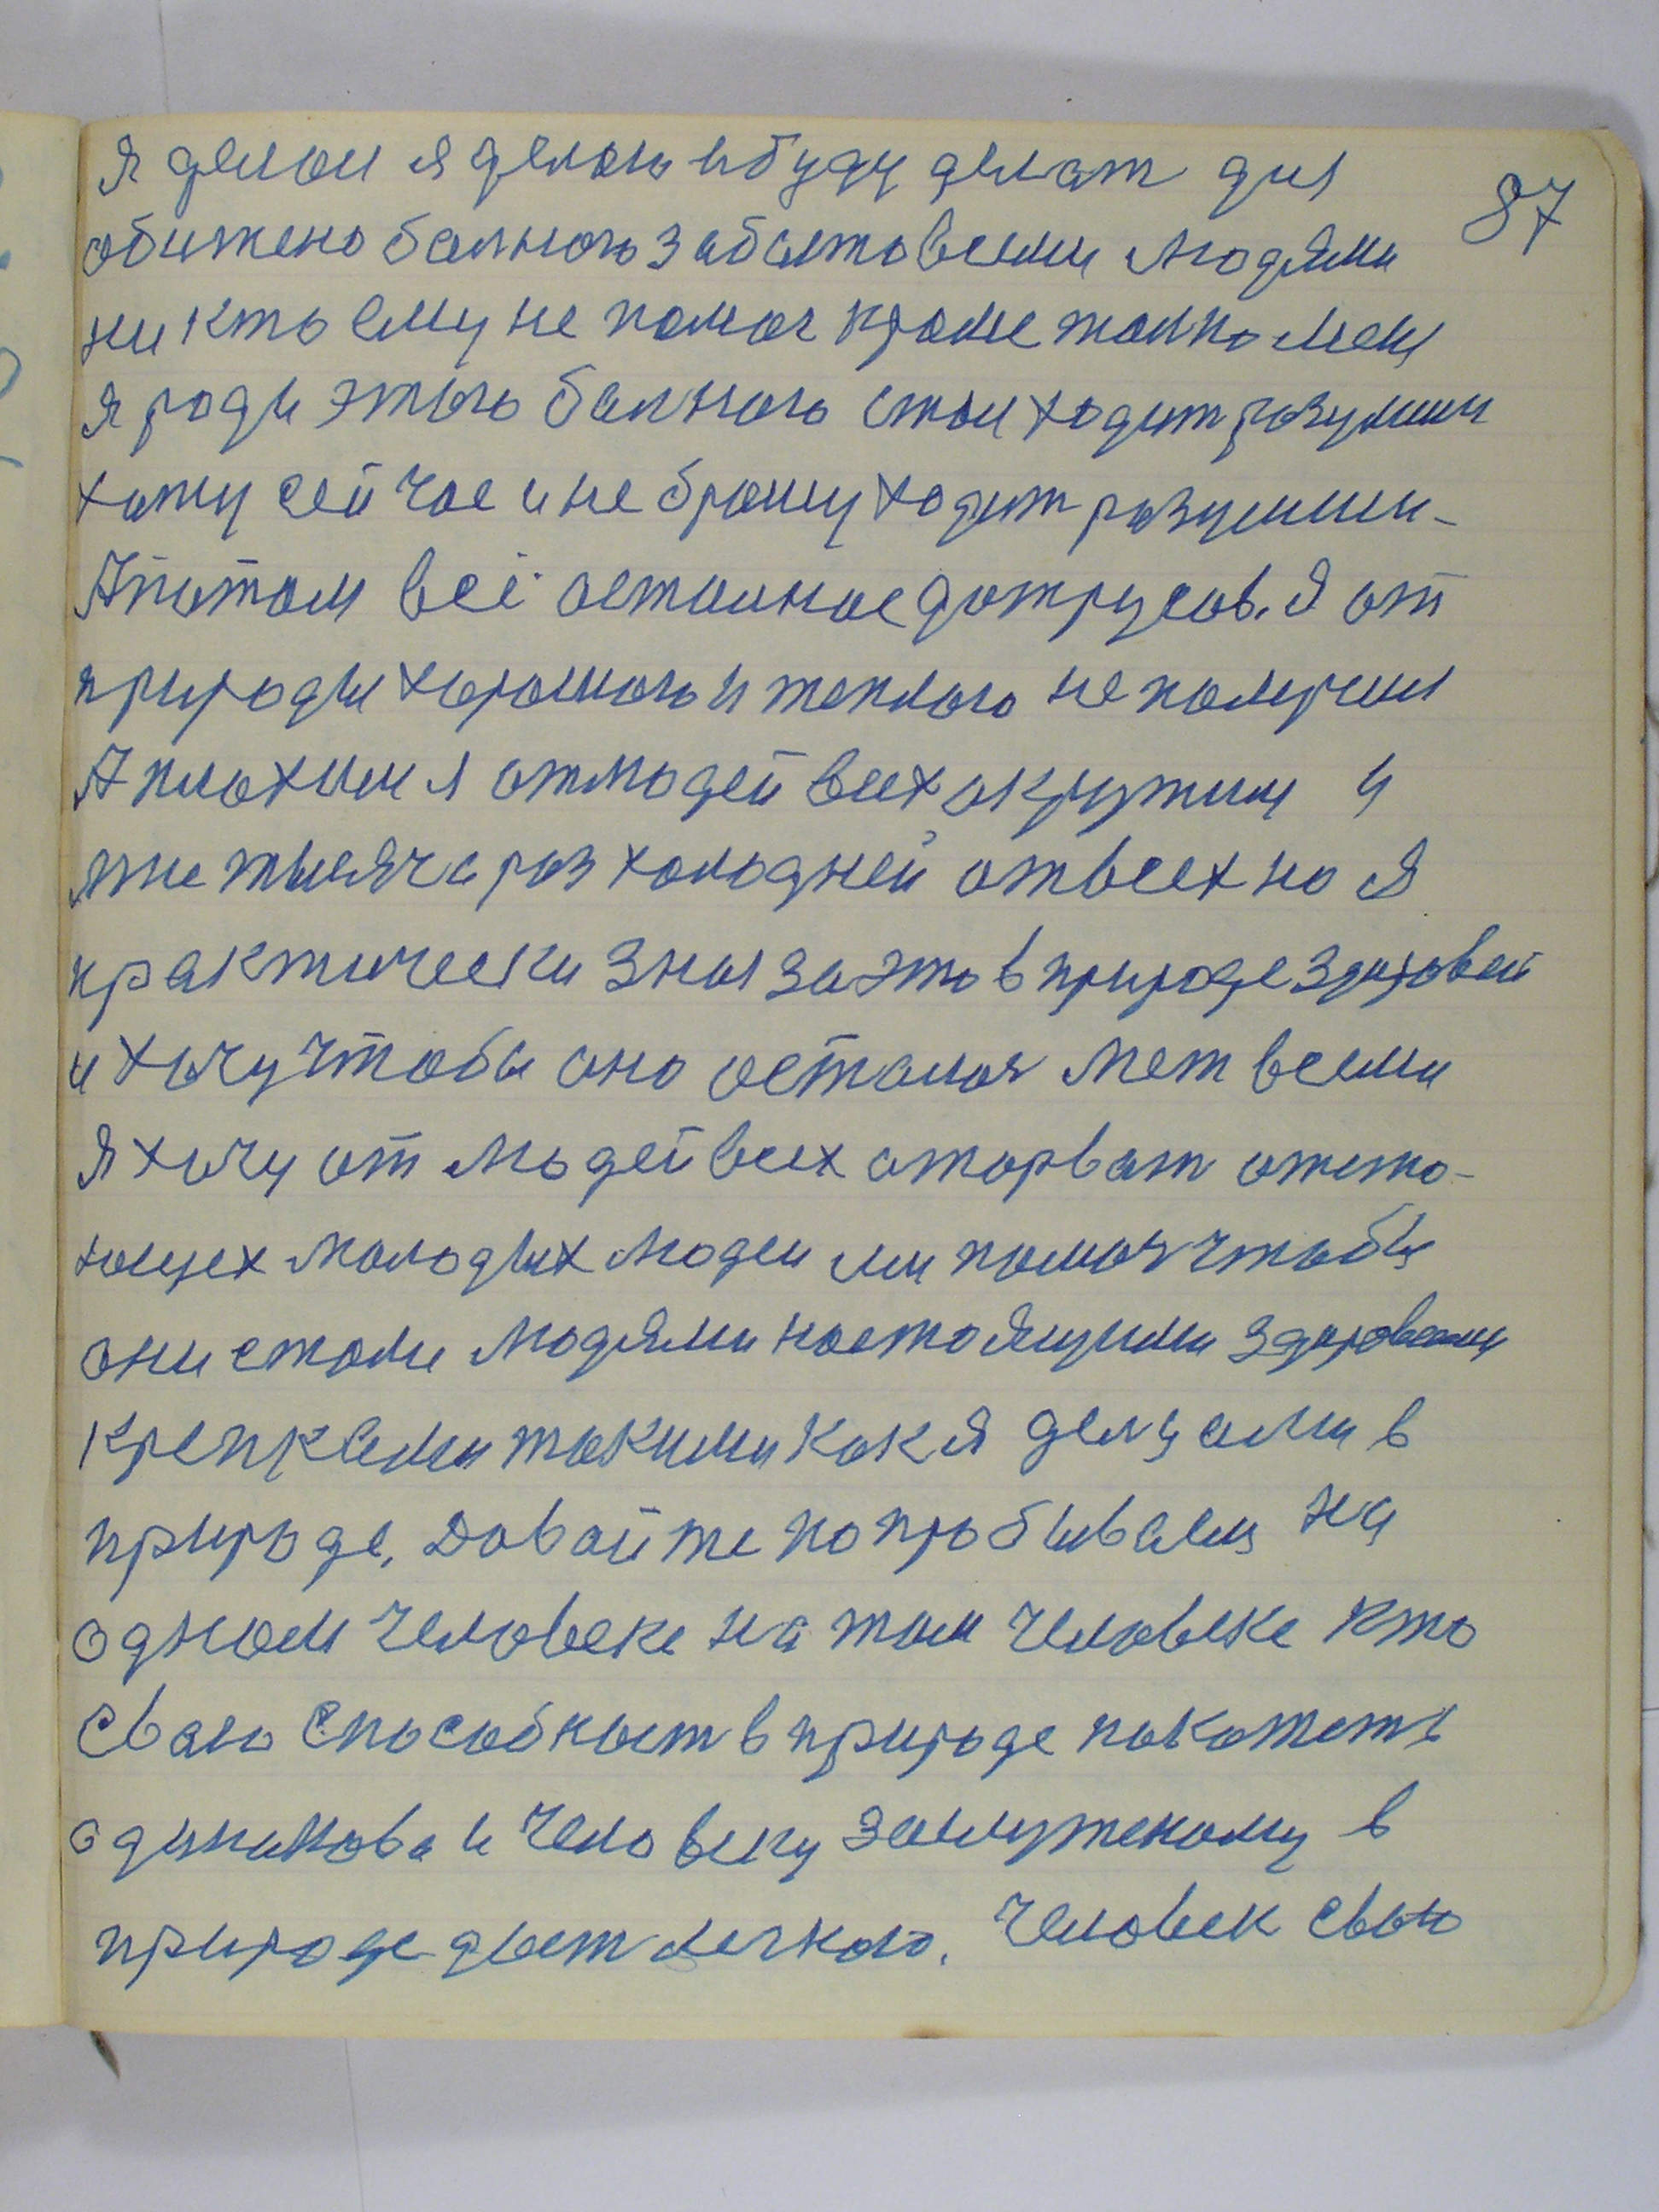 87
Я делал я делаю и буду делат для
обижено болного забыто всеми людями
ни кто ему не помог кроме толко мены
я ради этого болного стал ходит разумши
хажу сей час и не брошу ходит разумши-
А потом всё осталное до трусов. Я от
природы хорошого и теплого не
А плохим я от людей всех окружин и
мне тысяча раз холодней от всех но я
практически знал за это в природе здоровей
и хочу чтобы оно осталос мет всеми
Я хочу от людей всех оторват
молодых людей им помоч чтобы
они стали людями настоящими здоровыми
крепками такими как я в
природе. Давайте попробываем на
одном человеке на том человеке кто
сваю способност в природе покажеть
одинаково и человеку заслуженому в
природе дает легкого. Человек свою